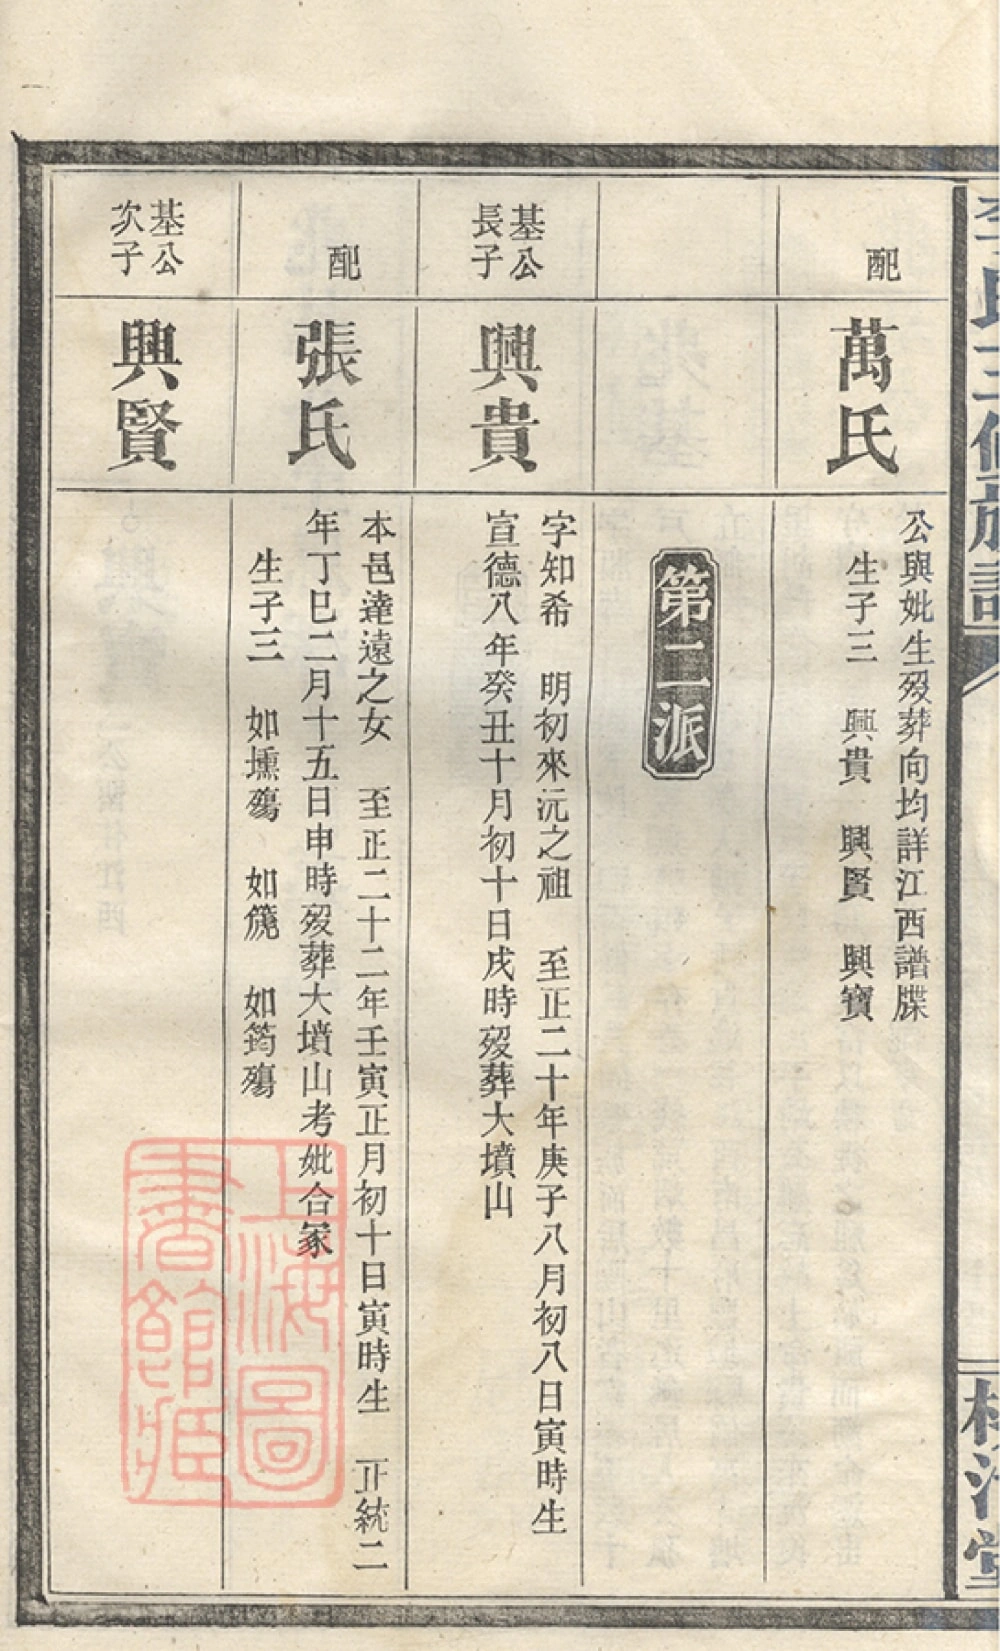 李氏
修族譜
配
萬氏
公與妣生歿葬向均詳江西譜牒
生子三　興貴　興賢　興寶
第二派
基公
長子
興貴
字知希　明初來沅之祖　至正二十年庚子八月初八日寅時生
宣德八年癸丑十月初十日戌時歿葬大墳山
配
張氏
本邑達遠之女　至正二十二年壬寅正月初十日寅時生　正統二
年丁巳二月十五日申時歿葬大墳山考妣合冢
生子三　如壎殤　如箎　如筠殤
基公
次子
興賢
上海圖
書館藏